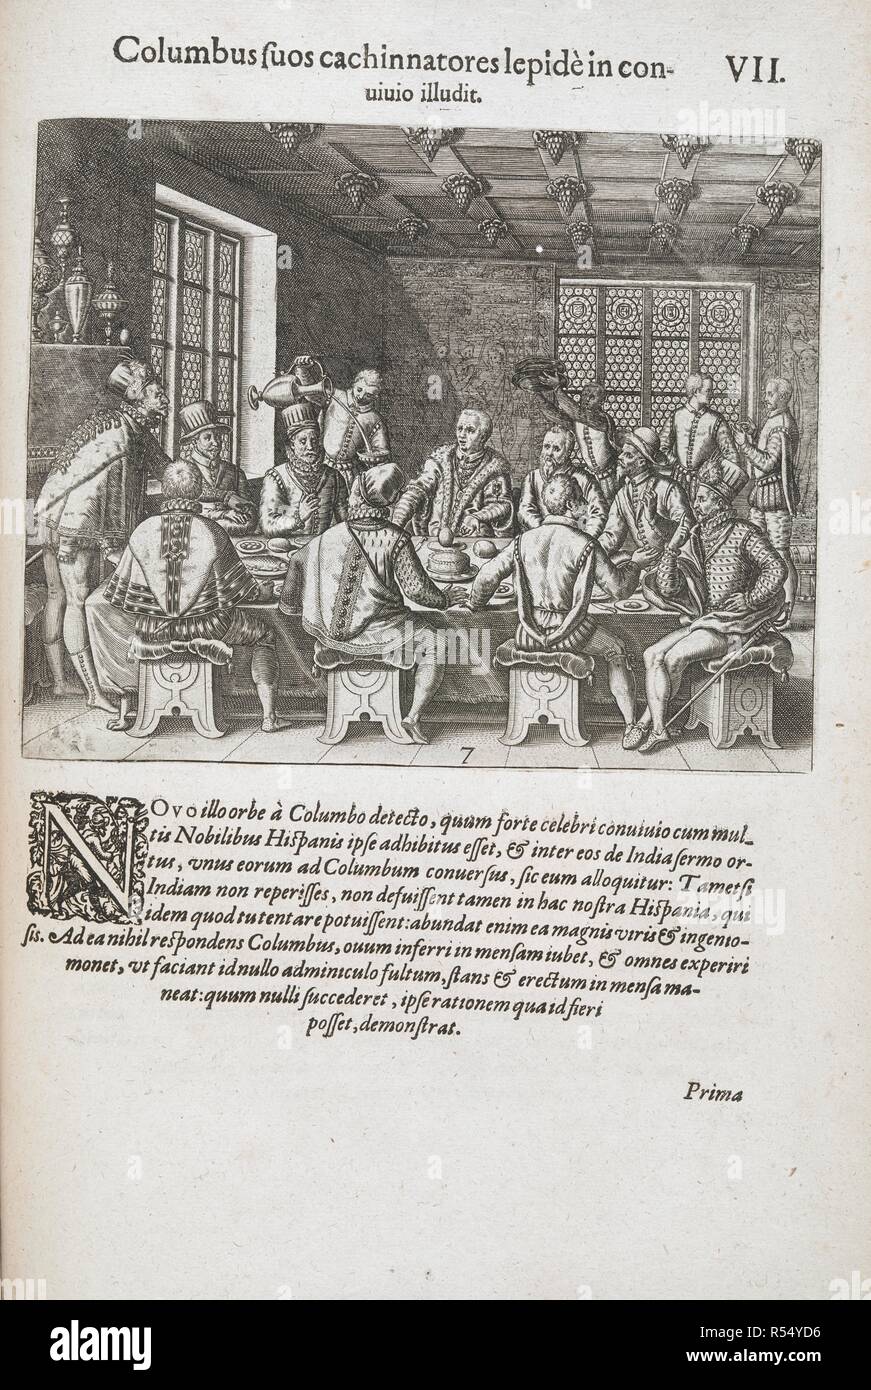 Columbus ſuos cachinnatores lepidè in con-
VII.
uiuio illudit.
7
NOvo illo orbe à Columbo detecto, quum forte celebri conuiuio cum mul-
tis Nobilibus Hiſpanis ipſe adhibitus eſſet, & inter eos de India ſermo or-
tus, vnus eorum ad Columbum conuerſus, ſic eum alloquitur: Tametſi
Indiam non reperiſſes, non defuiſſent tamen in hac noſtra Hiſpania, qui
idem quod tu tentare potuiſſent: abundat enim ea magnis viris & ingenio-
ſis. Ad ea nihil reſpondens Columbus, ouum inferri in menſam iubet, & omnes experiri
monet, vt faciant id nullo adminiculo fultum, ſtans & erectum in menſa ma-
neat: quum nulli ſuccederet, ipſe rationem qua id fieri
poſſet, demonſtrat.
Prima
alamy
Image ID: R5YYD6
www.alamy.com